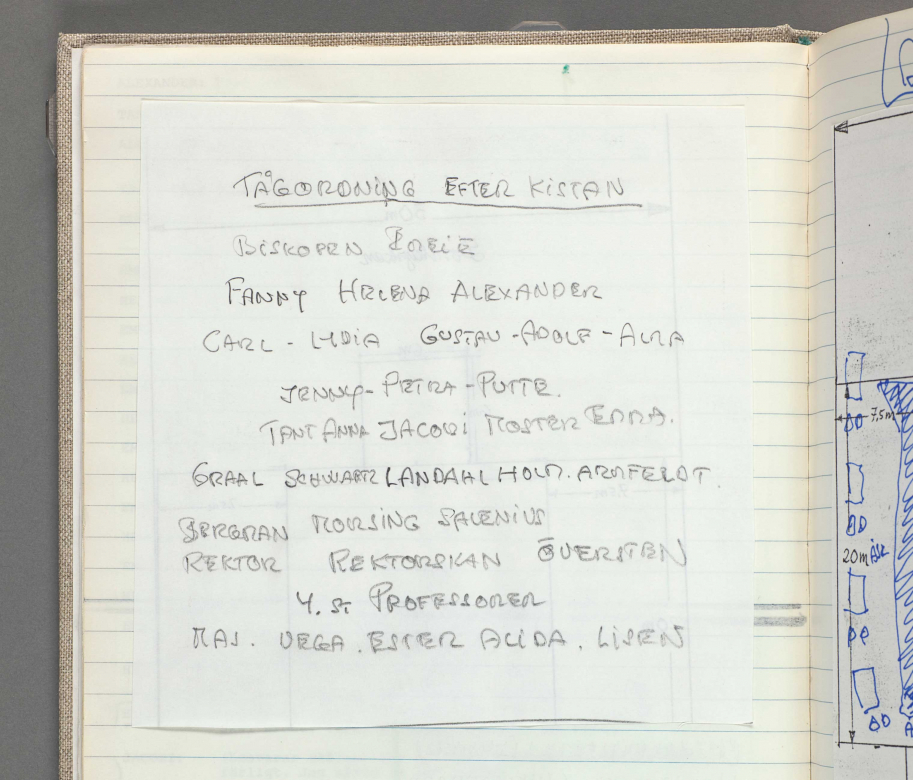 TÅGORDNING EFTER KISTAN
BISKOPEN EMELIE
FANNY HELENA ALEXANDER
CARL - LYDIA GUSTAV - ADOLF - ALMA
JENNY - PETRA - PUTTE.
TANT ANNA JACOBI MOSTER EMMA.
GRAAL SCHWARTZ LANDAHL HOLM. ARMFELDT.
BERGMAN MORSING SALENIUS
REKTOR REKTORSKAN ÖVERSTEN
4. St PROFESSORER
MAJ. VEGA. ESTER ALIDA. LISEN
7,5m
20m